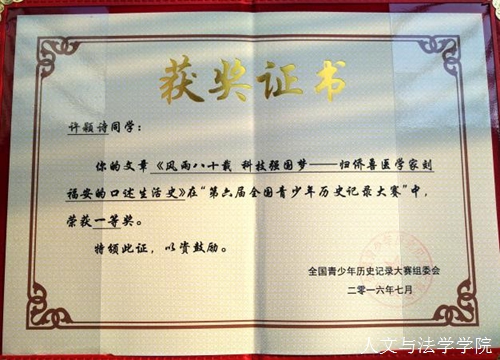 获奖证书
许颖诗同学:
你的文章《风雨八十载 科技强国梦——归侨兽医学家刘
福安的口述生活史》在“第六届全国青少年历史记录大赛”中,
荣获一等奖。
特颁此证,以资鼓励。
全国青少年历史记录大赛组委会
二零一六年七月
人文与法学学院